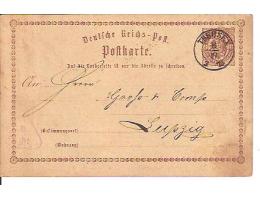 Deutsche Reichs-Post.
Postkarte.
Auf die Vorderseite ist nur die Adresse zu schreiben.
An Herrn
Leipzig
(Bestimmungsort)
(Wohnung)